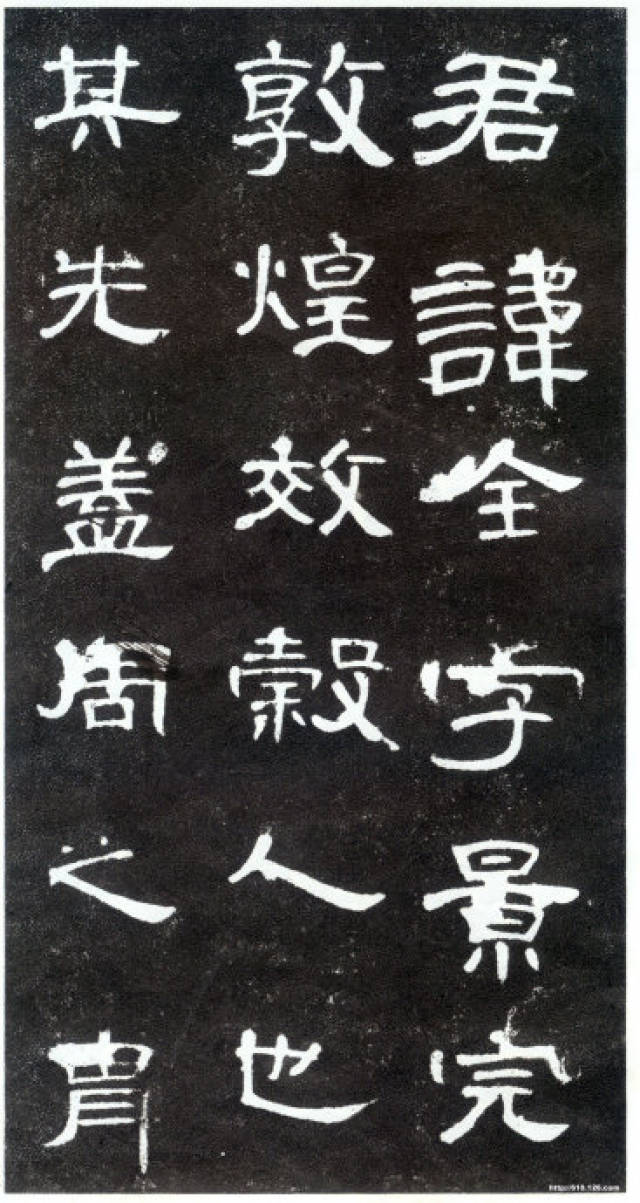 君諱全字景完
敦煌效穀人也
其先蓋周之胄
http://518.126.com